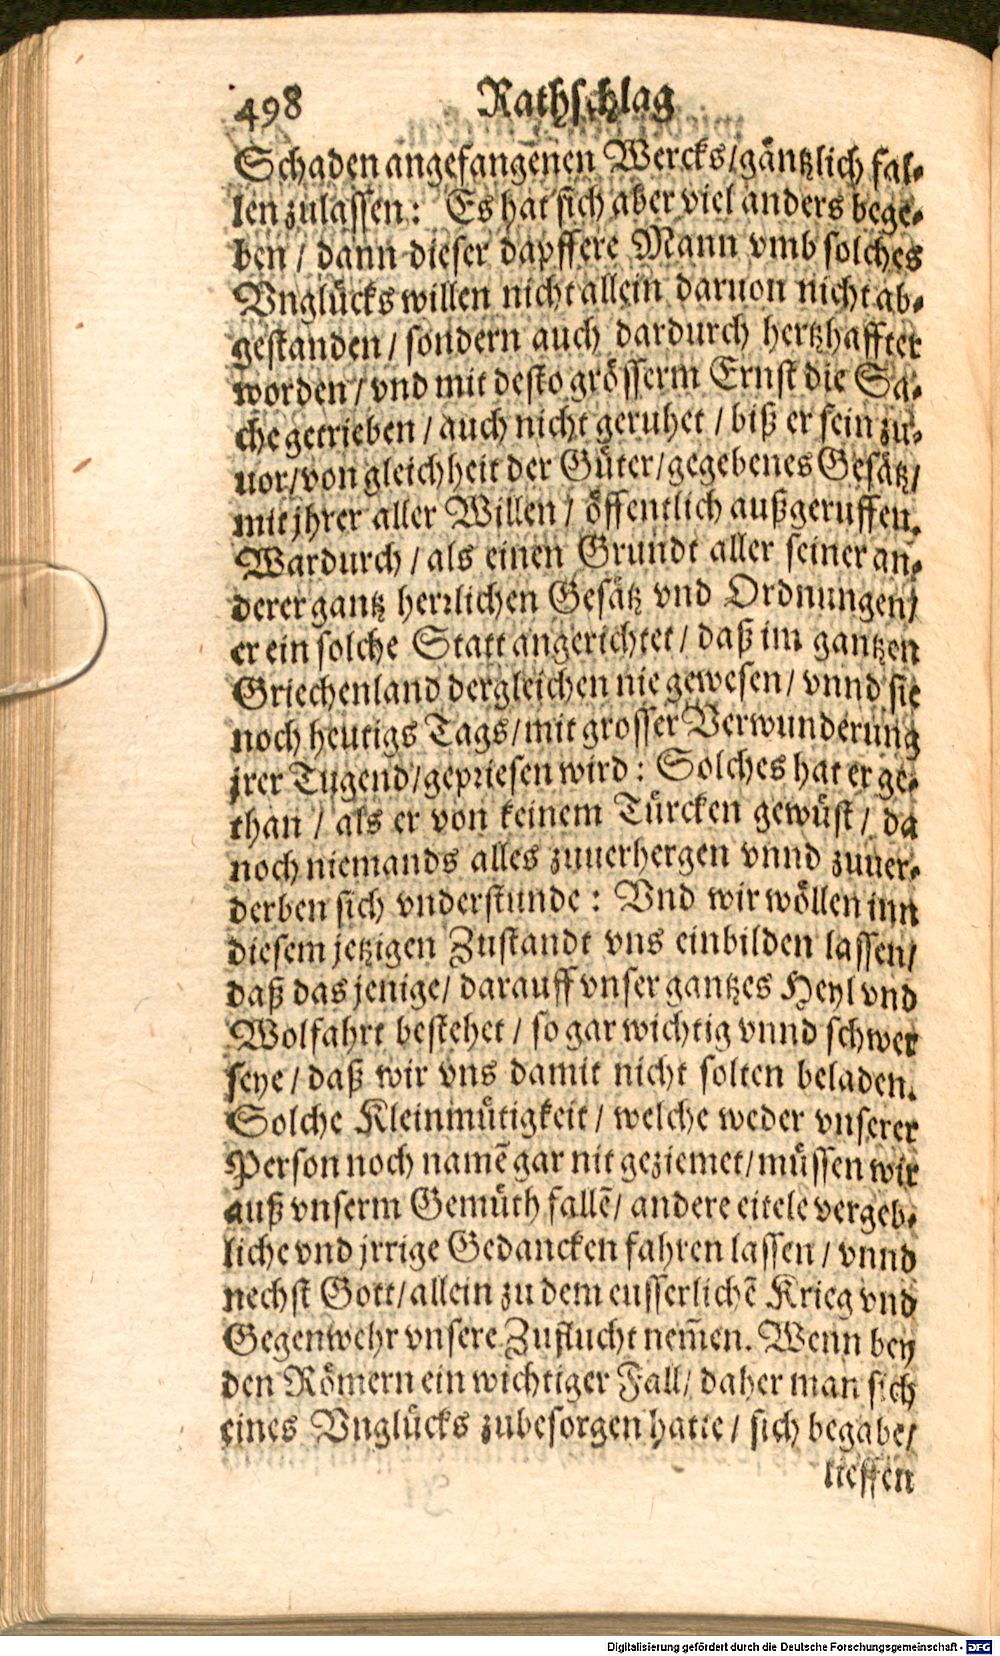 498 Rathschlag
Schaden angefangenen Wercks/gäntzlich fal-
len zulassen: Es hat sich aber viel anders bege-
ben / dann dieser dapffere Mann vmb solches
Vnglücks willen nicht allein daruon nicht ab-
gestanden / sondern auch dardurch hertzhaffter
worden / vnd mit desto grösserm Ernst die Sa-
che getrieben / auch nicht geruhet / biß er sein zu-
uor/von gleichheit der Güter/gegebenes Gesätz/
mit jhrer aller Willen / öffentlich außgeruffen.
Wardurch / als einen Grundt aller seiner an-
derer gantz herrlichen Gesätz vnd Ordnungen/
er ein solche Statt angerichtet / daß im gantzen
Griechenland dergleichen nie gewesen / vnnd sie
noch heutigs Tags/mit grosser Verwunderung
jrer Tugend/gepriesen wird: Solches hat er ge-
than / als er von keinem Türcken gewüst / da
noch niemands alles zuuerhergen vnnd zuuer-
derben sich vnderstunde: Vnd wir wöllen inn
diesem jetzigen Zustandt vns einbilden lassen/
daß das jenige/ darauff vnser gantzes Heyl vnd
Wolfahrt bestehet / so gar wichtig vnnd schwer
seye / daß wir vns damit nicht solten beladen.
Solche Kleinmütigkeit / welche weder vnserer
Person noch namẽ gar nit geziemet/müssen wir
auß vnserm Gemüth fallẽ/ andere eitele vergeb-
liche vnd jrrige Gedancken fahren lassen / vnnd
nechst Gott/allein zu dem eusserlichẽ Krieg vnd
Gegenwehr vnsere Zuflucht nem̃en. Wenn bey
den Römern ein wichtiger Fall/ daher man sich
eines Vnglücks zubesorgen hatte / sich begabe/
liessen
Digitalisierung gefördert durch die Deutsche Forschungsgemeinschaft - DFG